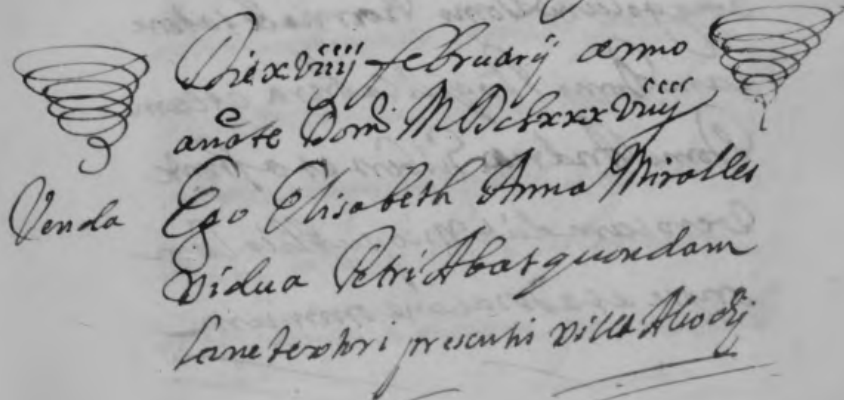 Die xviiij februarij anno
anate Domi MDclxxxviiij
Venda Ego Elisabeth Anna Miralles
vidua Petri Abat quondam
lane textori presentis ville Alcodij